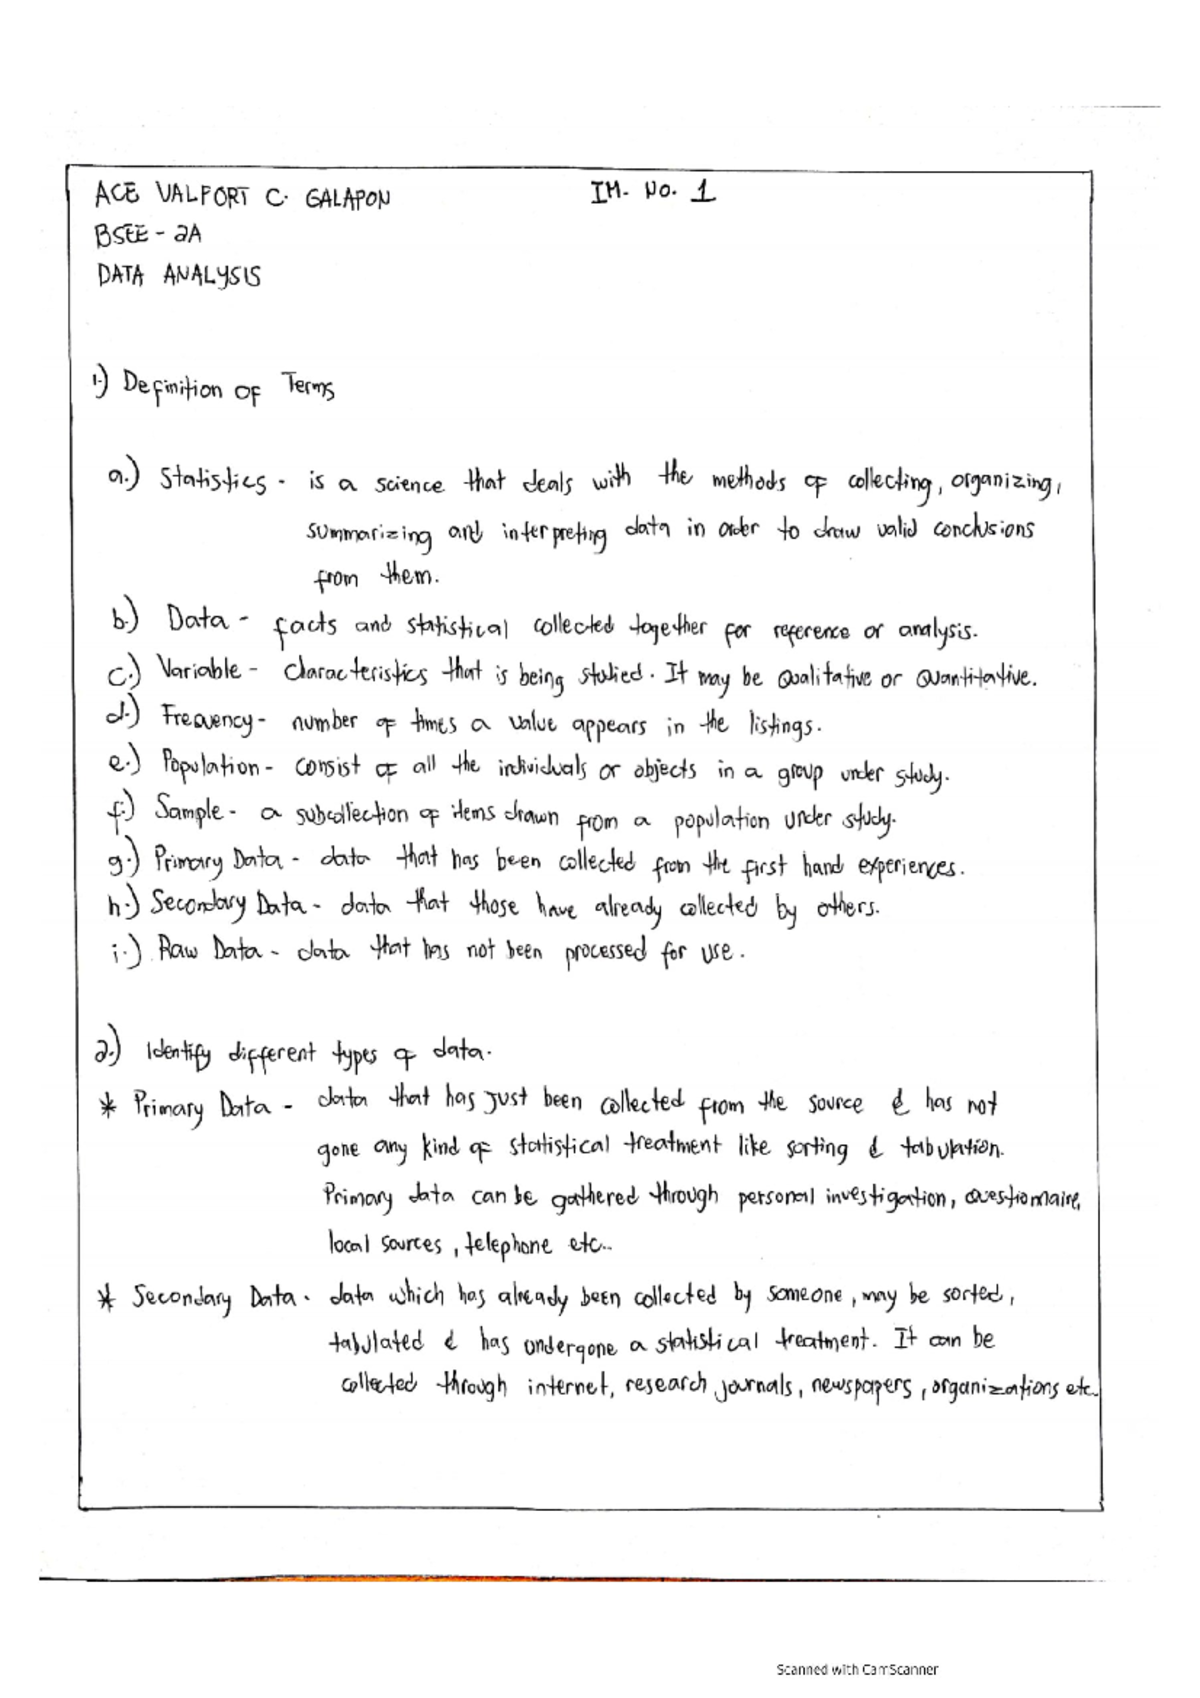 ACE VALFORT C. GALAPON IM. NO. 1
BSEE - 2A
DATA ANALYSIS
1.) Definition of Terms
a.) Statistics - is a science that deals with the methods of collecting, organizing,
summarizing and interpreting data in order to draw valid conclusions
from them.
b.) Data - facts and statistical collected together for reference or analysis.
c.) Variable - characteristics that is being studied. It may be Qualitative or Quantitative.
d.) Frequency - number of times a value appears in the listings.
e.) Population - consist of all the individuals or objects in a group under study.
f.) Sample - a subcollection of items drawn from a population under study.
g.) Primary Data - data that has been collected from the first hand experiences.
h.) Secondary Data - data that those have already collected by others.
i.) Raw Data - data that has not been processed for use.
2.) Identify different types of data.
* Primary Data - data that has just been collected from the source & has not
gone any kind of statistical treatment like sorting & tabulation.
Primary data can be gathered through personal investigation, questionnaire,
local sources, telephone etc..
* Secondary Data - data which has already been collected by someone, may be sorted,
tabulated & has undergone a statistical treatment. It can be
collected through internet, research journals, newspapers, organizations etc.
Scanned with CamScanner